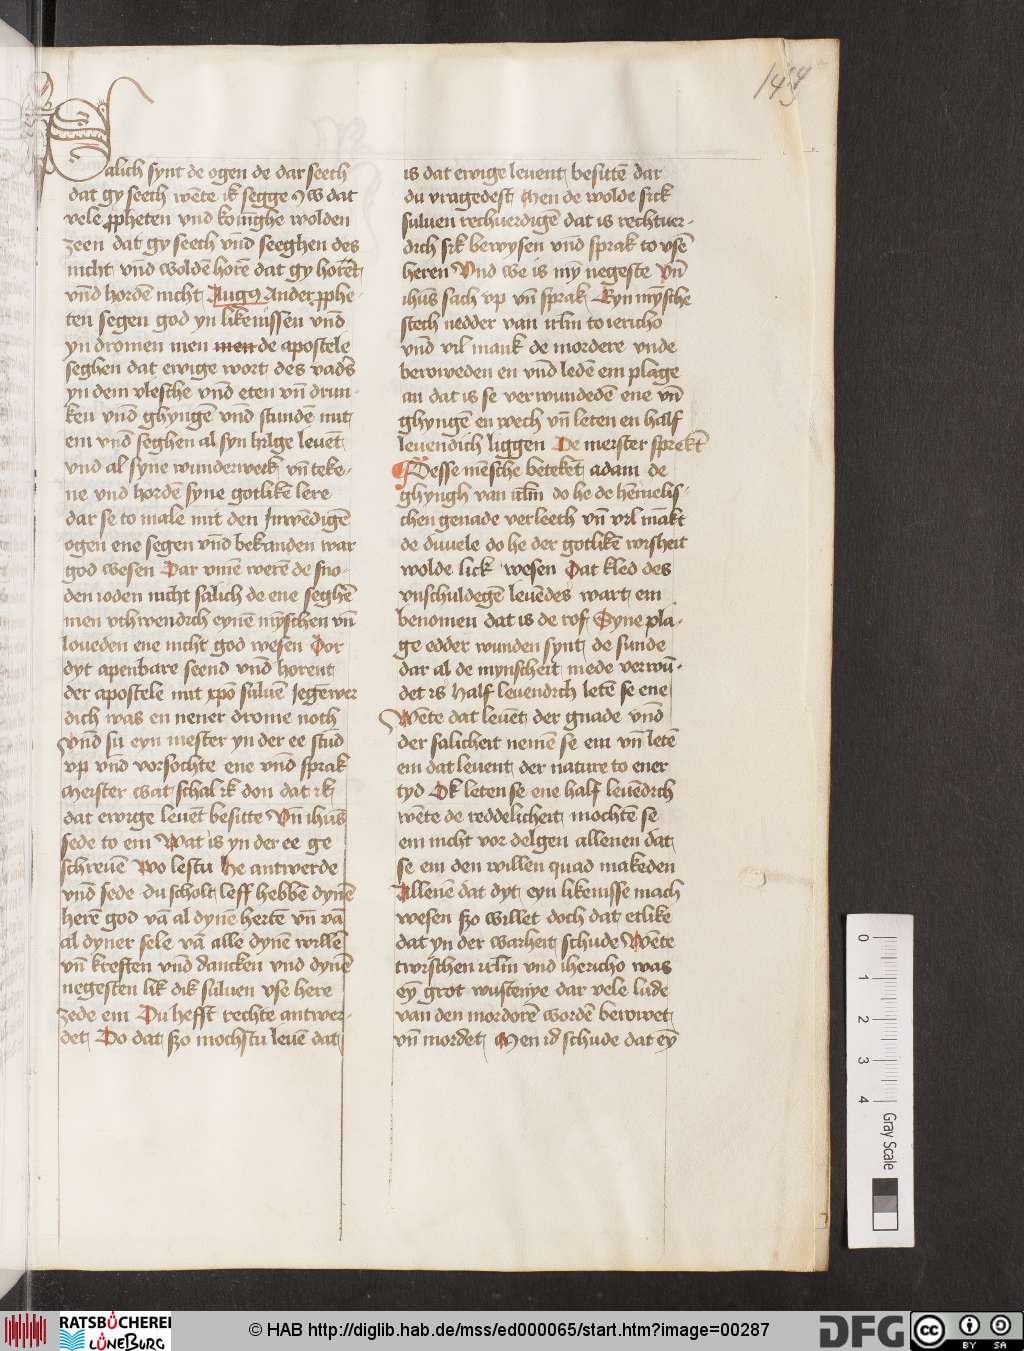 144
Salich synt de ogen de dar seeth
dat gy seeth wēte ik segge yw dat
vele ꝓpheten vnd konighe wolden
zeen dat gy seeth vnd seeghen des
nicht vnd woldē horē dat gy horēt
vnd hordē nicht Augꝰ Ander ꝓphe-
ten segen god yn likenissen vnd
yn dromen men men de apostele
seghen dat ewige wort des vaders
yn dem vlesche vnd eten vn̄ drun-
ken vnd ghyngē vnd stundē mit
em vnd seghen al syn hilge leuēt
vnd al syne wunderwerk vn̄ teke-
ne vnd hordē syne gotlikē lere
dar se to male mit den Inwēdigē
ogen ene segen vnd bekanden war
god wesen Dar vmē werē de sno-
den ioden nicht salich de ene seghē
men vthwendich eynē mȳschen vn̄
loueden ene nicht god wesen Vor
dyt apenbare seend vnd horent
der apostele mit xp̄o suluē Iegēwer
dich was en nener drome noth
Vnd su eyn mester yn der ee stūd
vp vnd vorsochte ene vnd sprak
Meister wat schal ik don dat ik
dat ewige leuēt besitte Vn̄ ihūs
sede to em Wat is yn der ee ge
schreuē Wo lestu he antwerde
vnd sede du scholt leff hebbē dynē
herē god vā al dynē hertē vn̄ vā
al dyner sele vā alle dynē willē
vn̄ kreften vnd dancken vnd dynē
negesten lik dik suluen vse here
zede em Du hefft rechte antwer-
det Do dat szo mochstu leuē dat
is dat ewige leuent besittē dar
du vragedest Men de wolde sick
suluen rechuerdigē dat is rechtuer-
dich sik bewysen vnd sprak to vsē
heren Vnd we is mȳ negeste Vn̄
ihūs sach vp vn̄ sprak Eyn mȳsche
stech nedder van irl̄m to iericho
vnd vil mank de mordere vnde
beroweden en vnd ledē em plage
an dat is se verwundedē ene vn̄
ghyngē en wech vn̄ leten en half
leuendich liggen De meister sprekt
Desse mēsche beteket adam de
ghyngh van irl̄m do he de hemelis-
chen genade verleeth vn̄ vil mākt
de duuele do he der gotlikē wisheit
wolde lick wesen Dat kled des
vnschuldegē leuēdes wart em
benomen dat is de rof Syne pla-
ge edder wunden synt de sunde
dar al de mynscheit mede verwū-
det is Half leuendich letē se ene
Wēte dat leuēt der gnade vnd
der salicheit nemē se em vn̄ letē
em dat leuent der nature to ener
tyd Ok leten se ene half leuēdich
wēte de reddelicheit mochtē se
em nicht vor delgen allenen dat
se em den willen quad makeden
Allenē dat dyt eyn likenisse mach
wesen szo willet doch dat etlike
dat yn der warheit schude Wēte
twischen irl̄m vnd ihericho was
eȳ grot wustenye dar vele lude
van den mordorē wordē berowet
vn̄ mordet Men id schude dat eȳ
0
1
2
3
4
Gray Scale
RATSBÜCHEREI LÜNEBURG
© HAB http://diglib.hab.de/mss/ed000065/start.htm?image=00287
DFG
cc BY SA